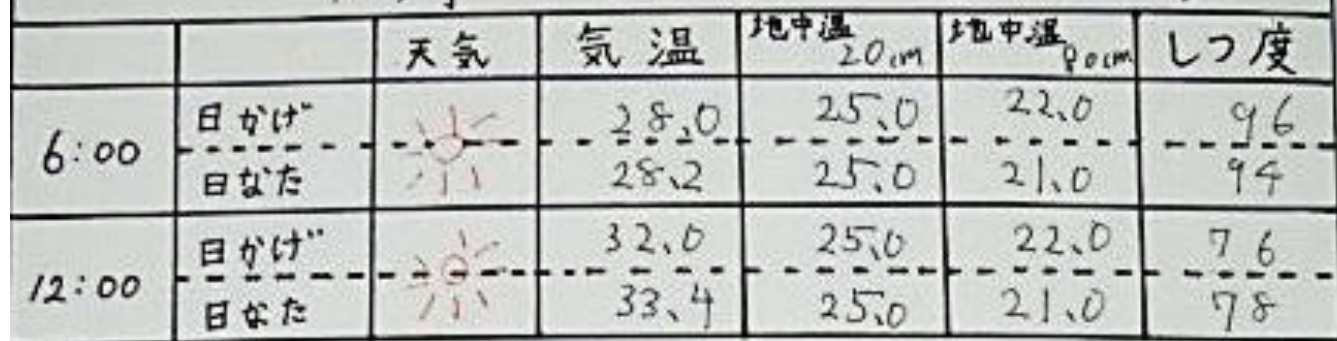 天気 気温 地中温20cm 地中温80cm しつ度
6:00 日かげ 28.0 25.0 22.0 96
日なた 28.2 25.0 21.0 94
12:00 日かげ 32.0 25.0 22.0 76
日なた 33.4 25.0 21.0 78